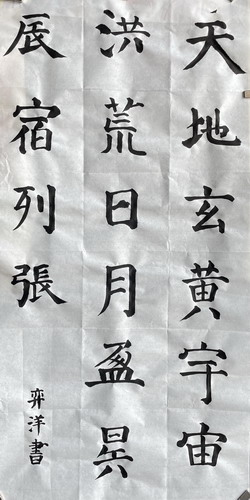 天地玄黄宇宙
洪荒日月盈昃
辰宿列張
弈洋書